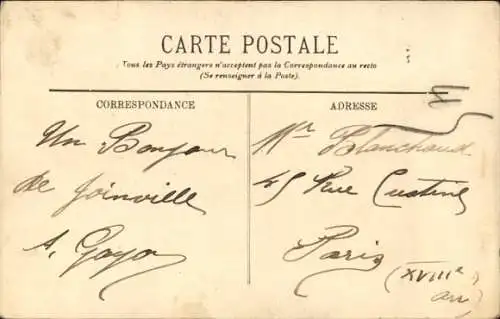 CARTE POSTALE
Tous les Pays étrangers n'acceptent pas la Correspondance au recto
(Se renseigner à la Poste).
CORRESPONDANCE
Un Bonjour
de Joinville
A. Goyo
ADRESSE
Mr Blanchaud
45 Rue Custine
Paris
(XVIIIe
arr)